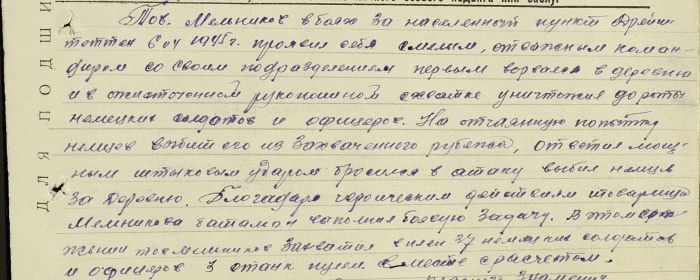 личного боевого подвига или заслуг
ДЛЯ ПОДШИ
Тов. Мельников в боях за населенный пункт
6 04 1945 г. проявил себя смелым, отважным коман-
диром со своим подразделением первым ворвался в деревню
и в ожесточенном рукопашном схватке уничтожил до роты
немецких солдатов и офицеров. На отчаянную попытку
немцев выбить его из захваченного рубежа, ответил мощ-
ным штыковым ударом бросился в атаку выбил немцев
за деревню. Благодаря героическим действиям товарища
Мельникова батальон выполнил боевую задачу. В этом сра-
жении тов. Мельников захватил в плен 37 немецких солдатов
и офицеров 3 станк. пулем. вместе с расчетом.
Знамени